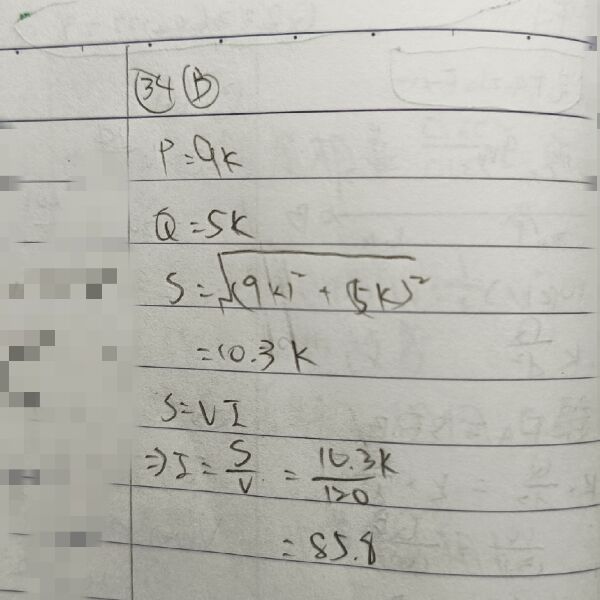 ㉞ Ⓑ
P=9K
Q=5K
S=√(9K)² + (5K)²
=10.3K
S=VI
⇒ I = S/V = 10.3K/120
= 85.8